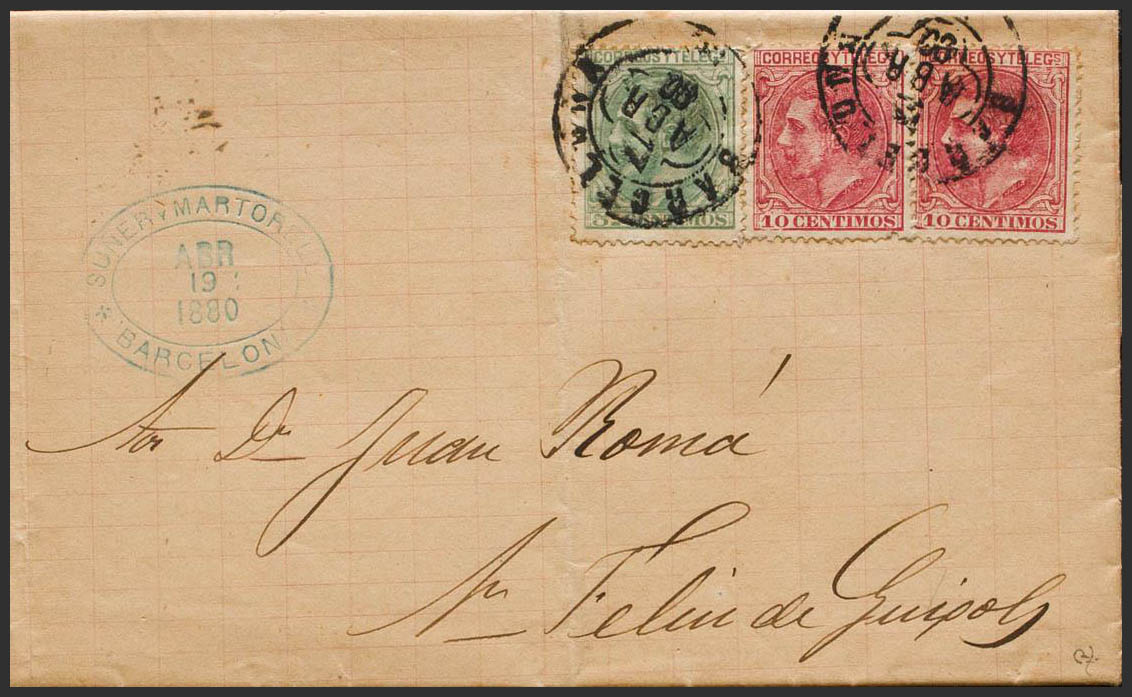 CORREOS Y TELEGS
5 CENTIMOS
CORREOS Y TELEGS
10 CENTIMOS
EOS Y TELEGS
10 CENTIMOS
BARCELONA
ABR
80
ABR
80
SUÑER Y MARTORELL
ABR
19
1880
* BARCELON
Sor Dn Juan Romá
Sn Feliu de Guixols